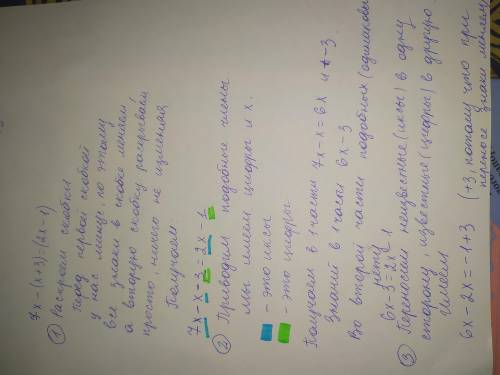 7х-(х+3)=(2х-1)
① Раскроем скобки
Перед первой скобкой
у нас минус, по этому
все знаки в скобке меняем
а вторую скобку раскрываем
просто, ничего не изменяя
Получаем:
7х-х-3=2х-1
② Приводим подобные члены.
мы имеем цифры и х.
- это иксы
- это цифры
Получаем в 1 части 7х-х=6х и -3.
Значит в 1 части 6х-3
Во второй части подобных (одинаковых)
нету
6х-3=2х-1
③ Переносим неизвестные (иксы) в одну
сторону, известные (цифры) в другую.
Имеем
6х-2х=-1+3 (+3, потому что при
переносе знаки меняем